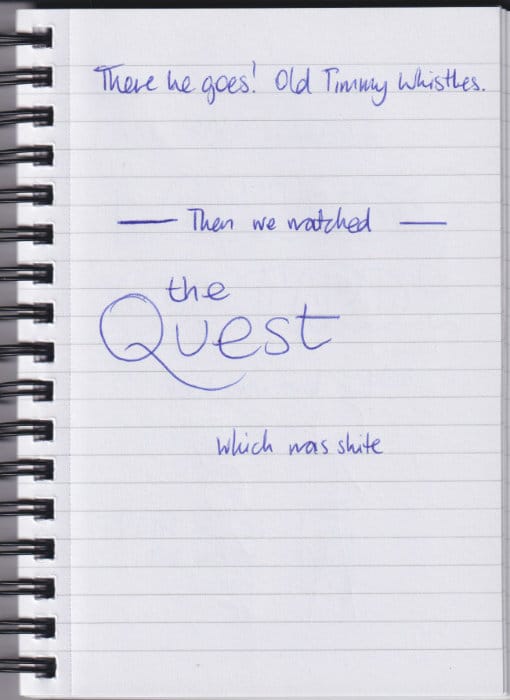 There he goes! Old Timmy Whistles.
— Then we watched —
the
Quest
Which was shite